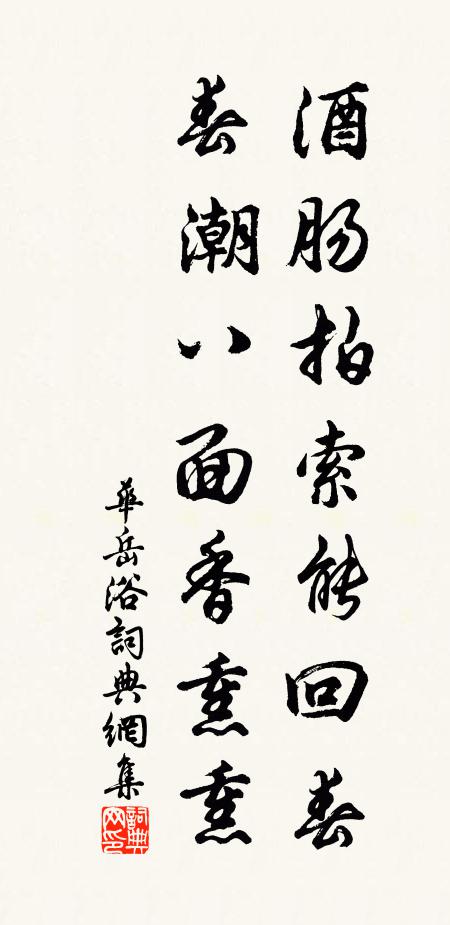 酒肠拍索能回春
春潮八面香熏熏
華岳浴詞典網集
詞典
网印